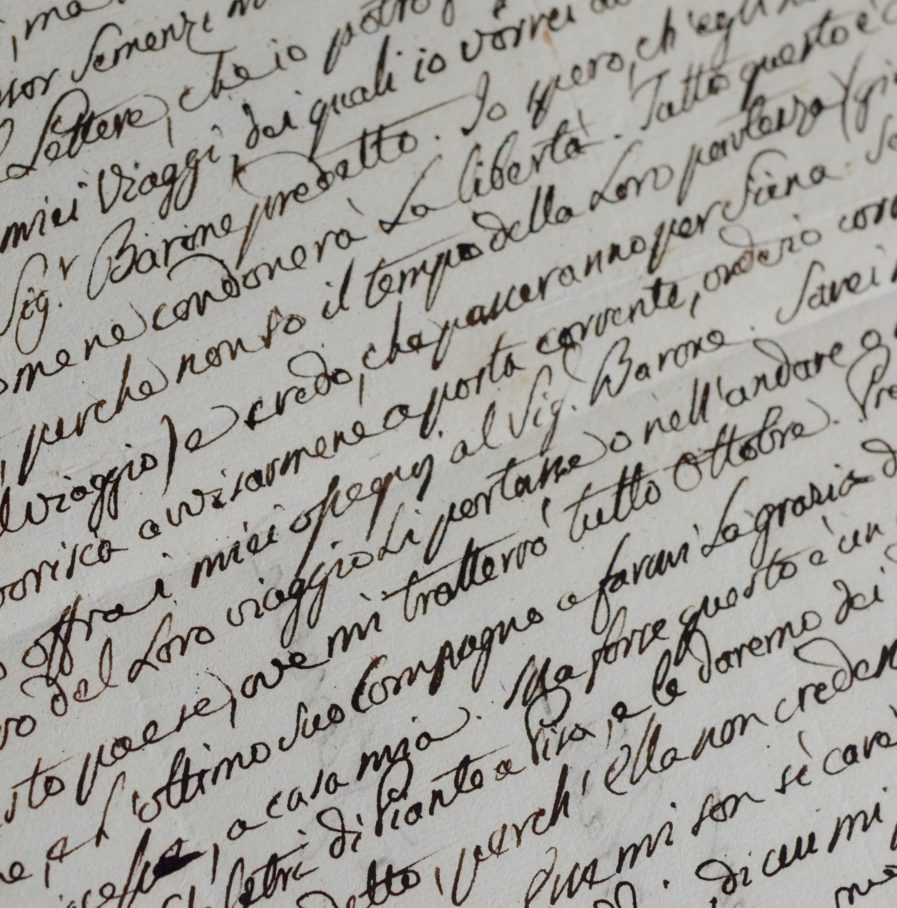 , ma
Lettere, che io potrò
miei Viaggi, dei quali io vorrei
Sig.r Barone predetto. Io spero, ch'egli
me ne condonerà La libertà. Tutto questo è
perche non so il tempo della Loro partenza (
viaggio) e credo, che passeranno per Siena. Se
avvisarmene a posta corrente, onde io
offra i miei ossequj al Sig.r Barone. Sarei
del Loro viaggio Li portasse o nell'andare o
paese, ove mi tratterrò tutto Ottobre.
l'ottimo suo Compagno a farmi La grazia
, a casa mia. Ma forse questo è un
di Piante a Pisa, e le daremo dei
detto, perch'ella non
mi son sì care
, di cui mi